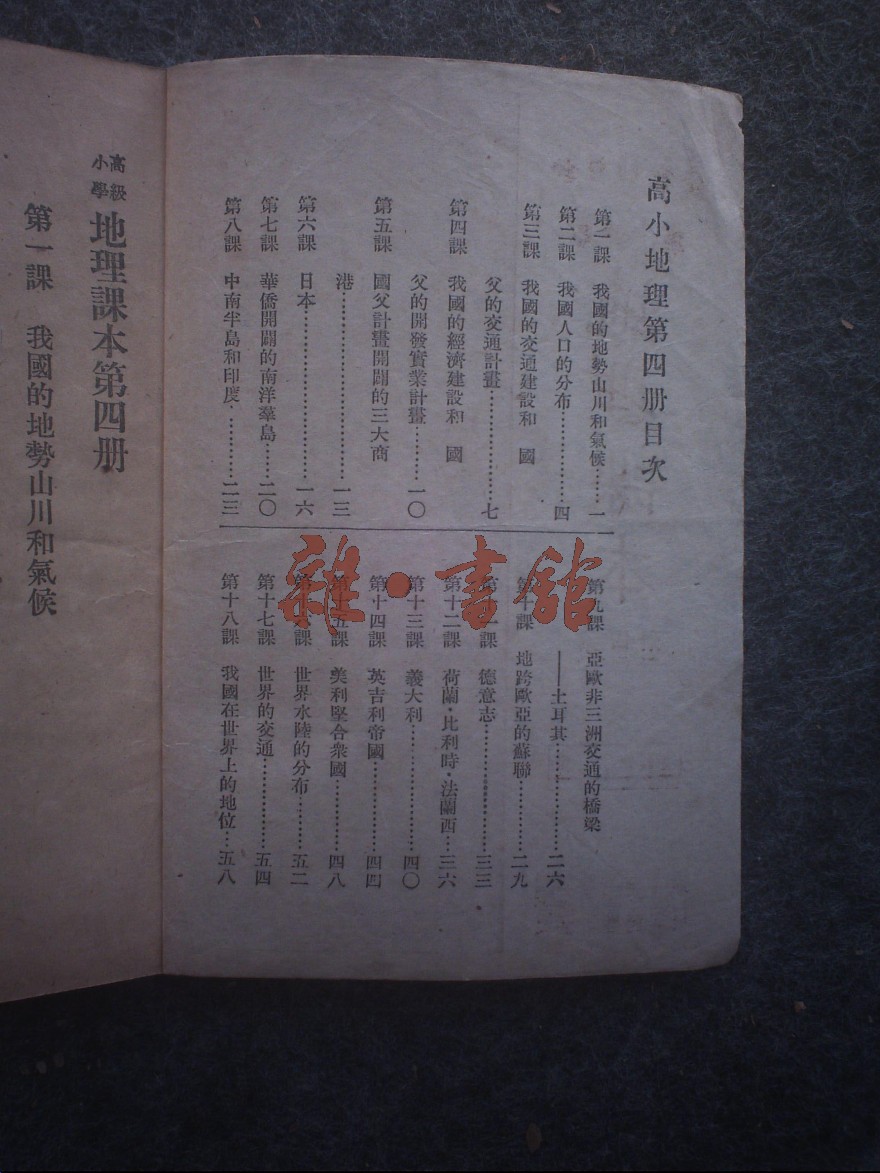 高小地理第四册目次
第一課　我國的地勢山川和氣候……一
第二課　我國人口的分布…………四
第三課　我國的交通建設和　國
父的交通計畫…………七
第四課　我國的經濟建設和　國
父的開發實業計畫………一〇
第五課　國父計畫開闢的三大商
港…………一三
第六課　日本…………一六
第七課　華僑開闢的南洋羣島……二〇
第八課　中南半島和印度…………二三
第九課　亞歐非三洲交通的橋梁
——土耳其…………二六
第十課　地跨歐亞的蘇聯………二九
第十一課　德意志…………三三
第十二課　荷蘭·比利時·法蘭西…三六
第十三課　義大利…………四〇
第十四課　英吉利帝國…………四四
第十五課　美利堅合衆國………四八
第十六課　世界水陸的分布………五二
第十七課　世界的交通…………五四
第十八課　我國在世界上的地位…五八
高級
小學
地理課本第四册
第一課　我國的地勢山川和氣候
雜·書館